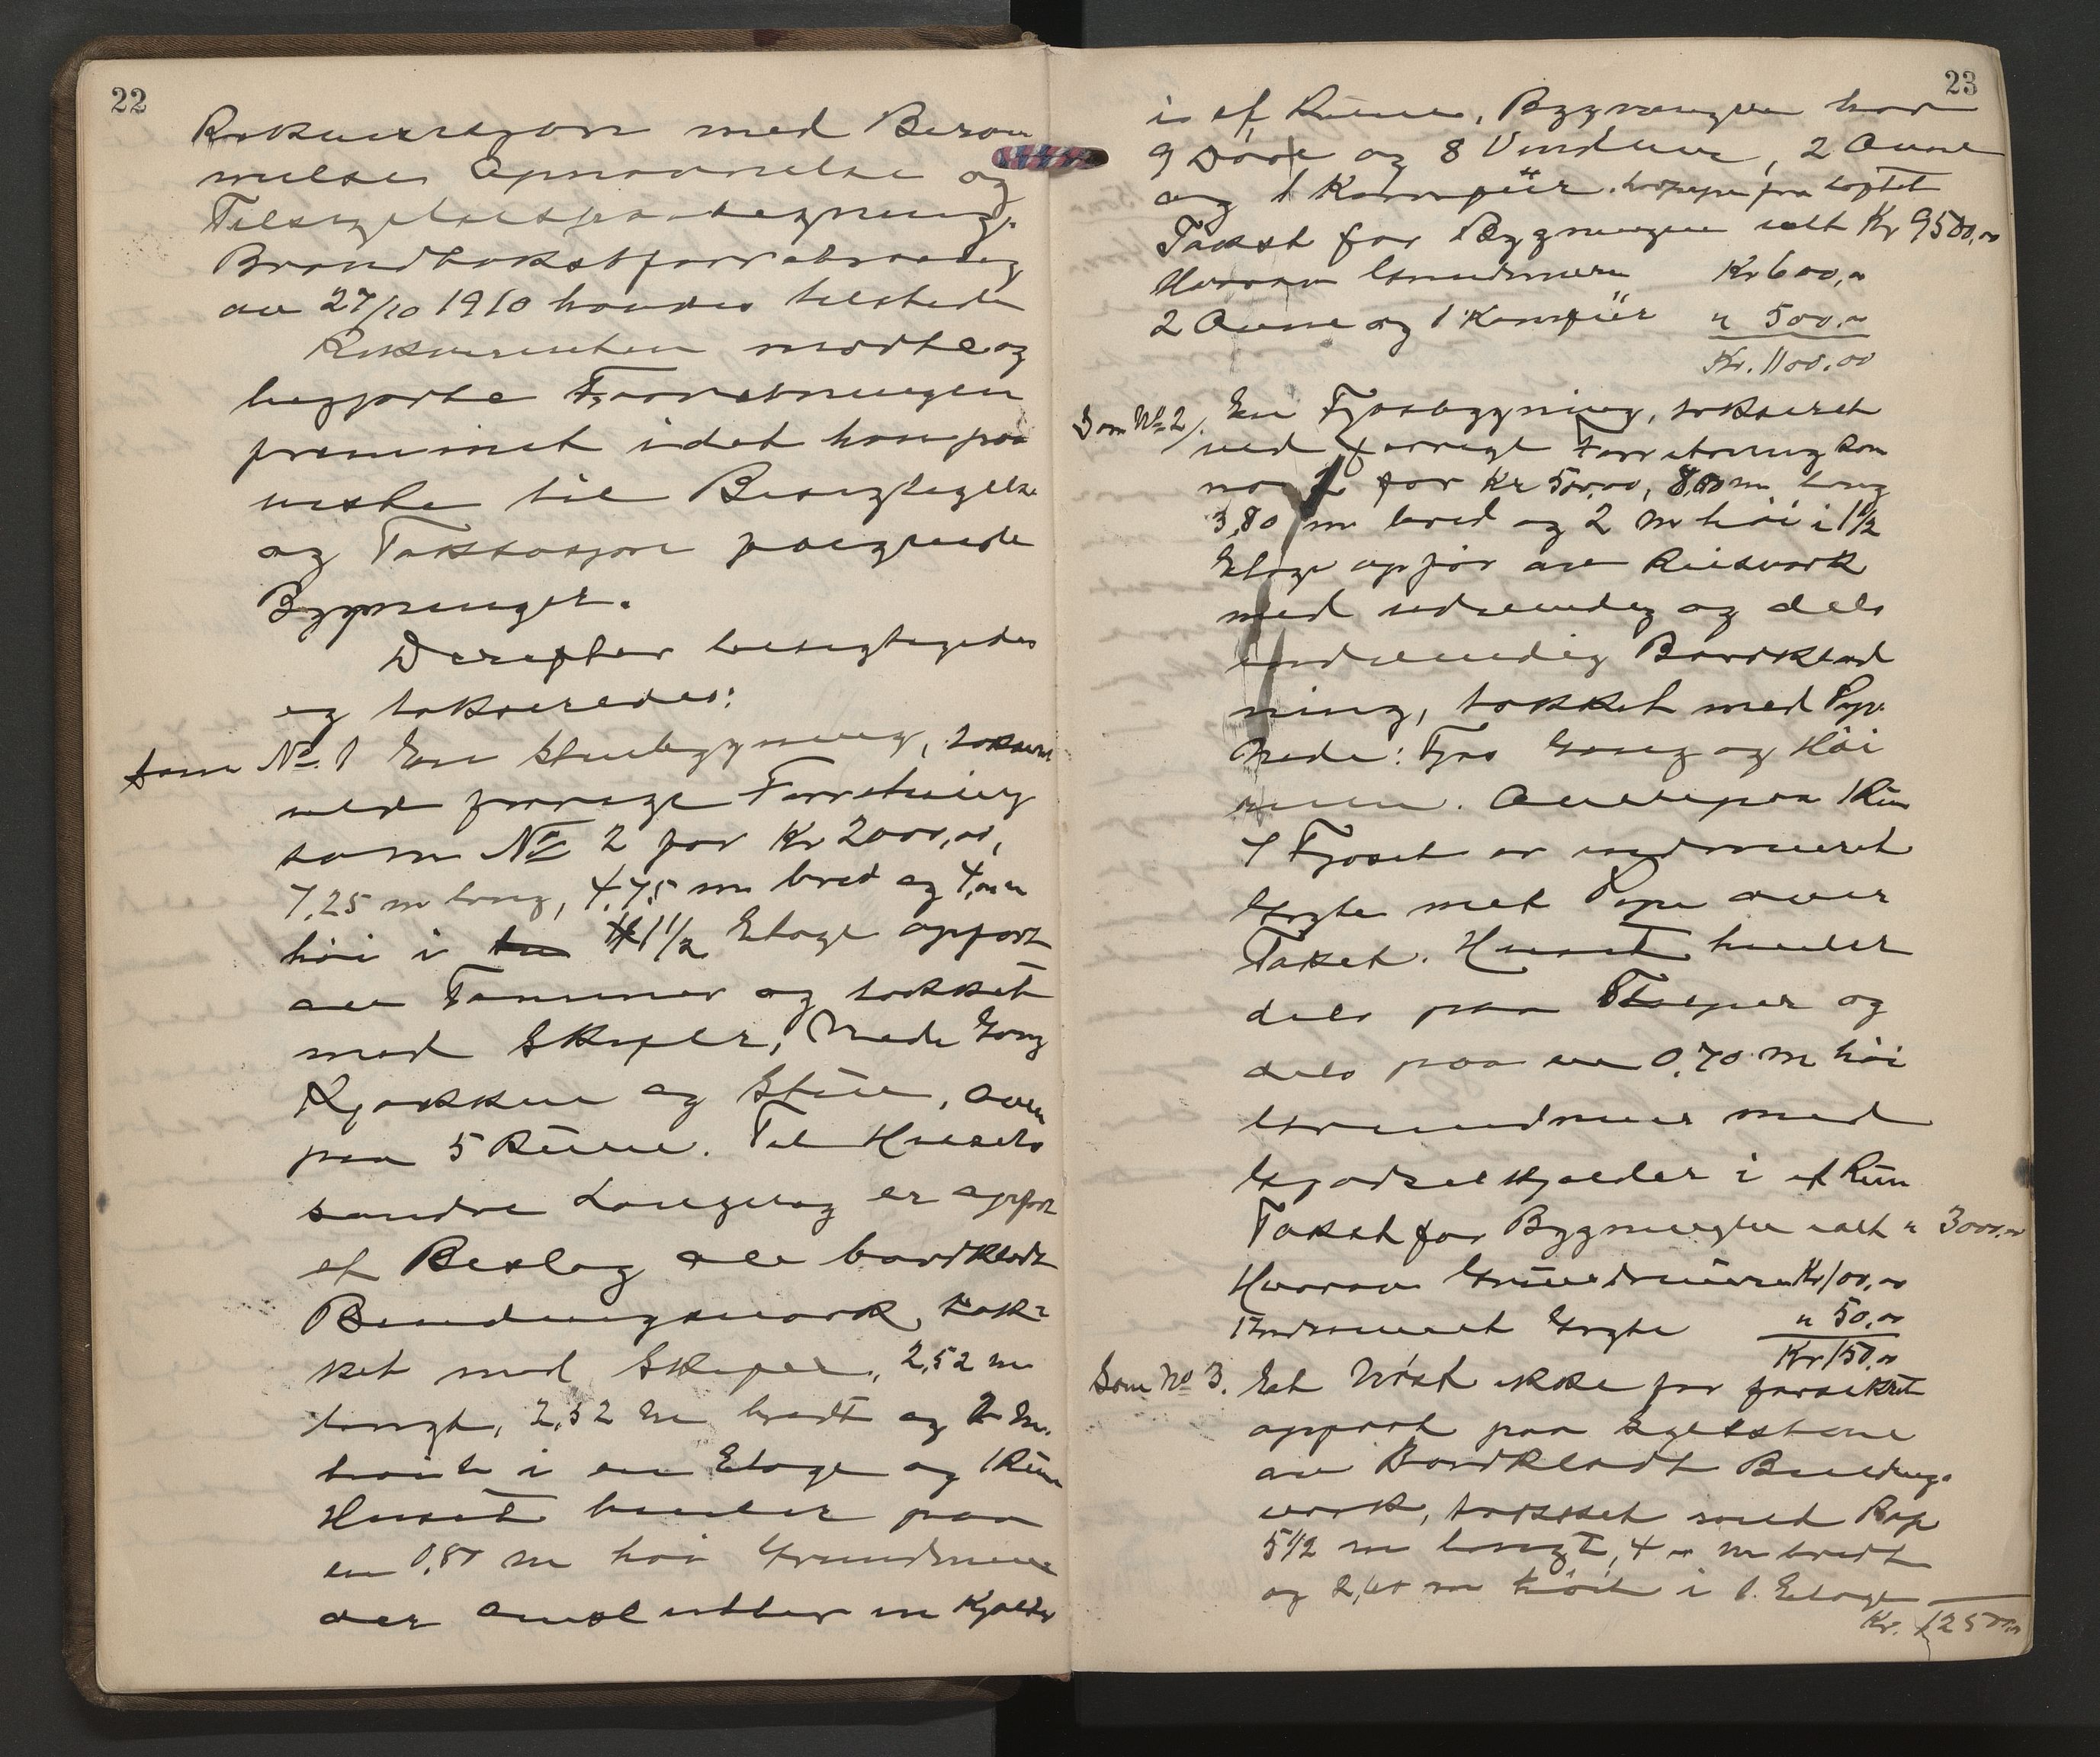 22
Rekvisisjon med Beram
melse Opnævnelse og
Tilsigelsespaategning.
Brandtakstforretning
av 27/10 1910 havdes tilstede
Rekvirenten mødte og
begjærte Forretningen
fremmet idet han paa
viste til Besigtigelse
og Taksasjon følgende
Bygninger.
Derefter besigtigedes
og takseredes:
Som No. 1 En Stuebygning, takseret
ved forrige Forretning
som No 2 for Kr 2000,00,
7,25 m lang, 4,75 m bred og 4,00 m
høi i 1 1/2 Etage opført
av Tømmer og tækket
med Skifer, Nede Gang
Kjøkken og Stue, oven
paa 5 Rum. Til Husets
søndre Langvæg er opført
et Beslag av bordklædt
Bindingsværk, tæk=
ket med Skifer, 2,52 m
langt, 2,52 m bredt og 2 m.
høit i en Etage og 1 Rum
Huset hviler paa
en 0,80 m høi Grundmur
der omslutter en Kjælder
23
i et Rum, Bygningen har
9 Døre og 8 Vinduer, 2 Ovne
og 1 Komfür. fra Loftet
Takst for Bygningen ialt Kr 9500,00
Hvorav Grundmuren Kr 600,00
2 Ovne og 1 Komfür " 500,00
Kr. 1100,00
Som No 2/. En Fjøsbygning, takseret
ved forrige Forretning som
no 1 for Kr 500,00, 8,60 m lang
3,80 m bred og 2 m høi i 1 1/2
Etage opført av Reisværk
med udvendig og dels
indvendig Bordklæd
ning, tækket med Pap.
Nede: Fjøs Gang og Høi
rum. Ovenpaa 1 Rum
I Fjøset er indmuret
Gryte met Pipe over
Taket. Huset hviler
dels paa Stolper og
dels paa en 0,70 m høi
Grundmur med
Gjødselkjælder i et Rum
Takst for Bygningen ialt " 3000,00
Hvorav Grundmuren Kr 100,00
Indmuret Gryte " 50,00
Kr 150,00
Som No 3. Et Nøst ikke før forsikret
opført paa Hjelstene
av Bordklædt Bindings.
værk, tækket med Pap
5 1/2 m langt, 4 00 m bredt
og 2,40 m høit i 1. Etage
Kr. 12500,00